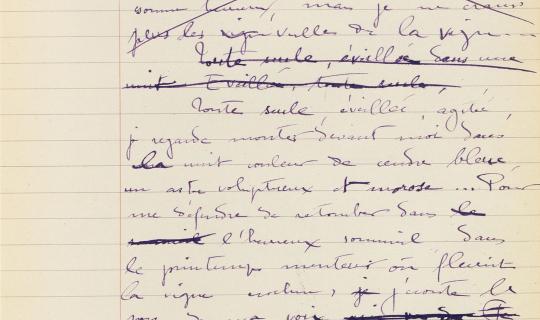 somme heureux, mais je ne crains
plus les vrilles de la vigne...
Toute seule, éveillée dans une
nuit Eveillée, toute seule,
Toute seule, éveillée, agitée,
je regarde monter devant moi dans
la nuit couleur de cendre bleue
un astre voluptueux et morose... Pour
me défendre de retomber dans le
sommeil l'heureux sommeil dans
le printemps menteur où fleurit
la vigne crochue, je j'écoute le
son de ma voix